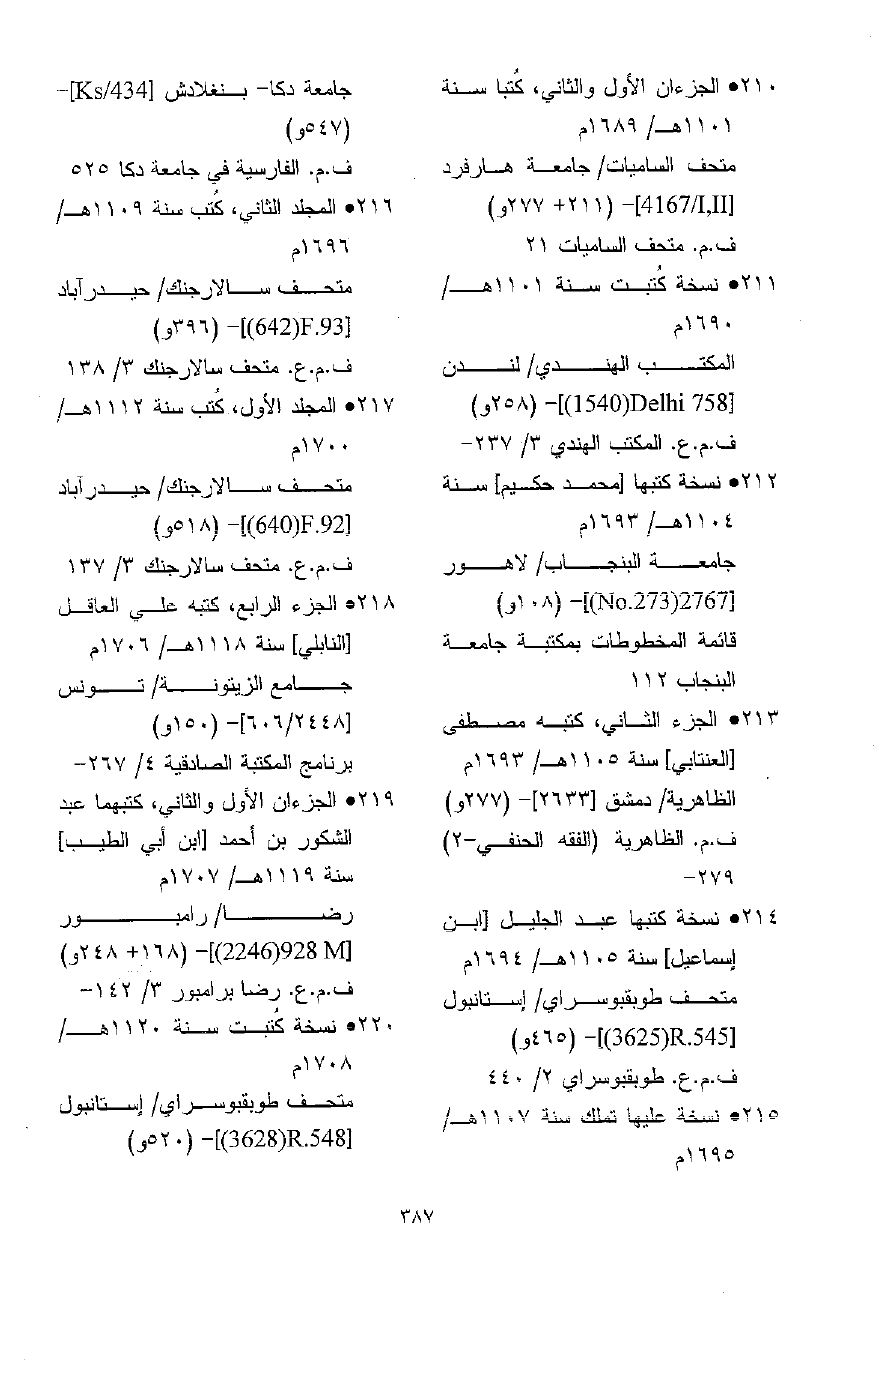 ٢١٠• الجزءان الأول والثاني، كُتبا سنة
١١٠١هـ/ ١٦٨٩م
متحف الساميات/ جامعة هارفرد
[4167/I,II]- (٢١١+ ٢٧٧و)
ف.م. متحف الساميات ٢١
٢١١• نسخة كُتبت سنة ١١٠١هـ/
١٦٩٠م
المكتب الهندي/ لندن
[Delhi 758(1540)]- (٢٥٨و)
ف.م.ع. المكتب الهندي ٣/ ٢٣٧-
٢١٢• نسخة كتبها [محمد حكيم] سنة
١١٠٤هـ/ ١٦٩٣م
جامعة البنجاب/ لاهور
[2767(No.273)]- (١٠٨و)
قائمة المخطوطات بمكتبة جامعة
البنجاب ١١٢
٢١٣• الجزء الثاني، كتبه مصطفى
[العنتابي] سنة ١١٠٥هـ/ ١٦٩٣م
الظاهرية/ دمشق [٢٦٣٣]- (٢٧٧و)
ف.م. الظاهرية (الفقه الحنفي-٢)
٢٧٩-
٢١٤• نسخة كتبها عبد الجليل [ابن
إسماعيل] سنة ١١٠٥هـ/ ١٦٩٤م
متحف طوبقبوسراي/ إستانبول
[R.545(3625)]- (٤٦٥و)
ف.م.ع. طوبقبوسراي ٢/ ٤٤٠
٢١٥• نسخة عليها تملك سنة ١١٠٧هـ/
١٦٩٥م
جامعة دكا- بنغلادش [Ks/434]-
(٥٤٧و)
ف.م. الفارسية في جامعة دكا ٥٢٥
٢١٦• المجلد الثاني، كُتب سنة ١١٠٩هـ/
١٦٩٦م
متحف سالارجنك/ حيدرآباد
[F.93(642)]- (٣٩٦و)
ف.م.ع. متحف سالارجنك ٣/ ١٣٨
٢١٧• المجلد الأول، كُتب سنة ١١١٢هـ/
١٧٠٠م
متحف سالارجنك/ حيدرآباد
[F.92(640)]- (٥١٨و)
ف.م.ع. متحف سالارجنك ٣/ ١٣٧
٢١٨• الجزء الرابع، كتبه علي العاقل
[النابلي] سنة ١١١٨هـ/ ١٧٠٦م
جامع الزيتونة/ تونس
[٦٠٦/٢٤٤٨]- (١٥٠و)
برنامج المكتبة الصادقية ٤/ ٢٦٧-
٢١٩• الجزءان الأول والثاني، كتبهما عبد
الشكور بن أحمد [ابن أبي الطيب]
سنة ١١١٩هـ/ ١٧٠٧م
رضا/ رامبور
[928 M(2246)]- (١٦٨+ ٢٤٨و)
ف.م.ع. رضا برامبور ٣/ ١٤٢-
٢٢٠• نسخة كُتبت سنة ١١٢٠هـ/
١٧٠٨م
متحف طوبقبوسراي/ إستانبول
[R.548(3628)]- (٥٢٠و)
٣٨٧